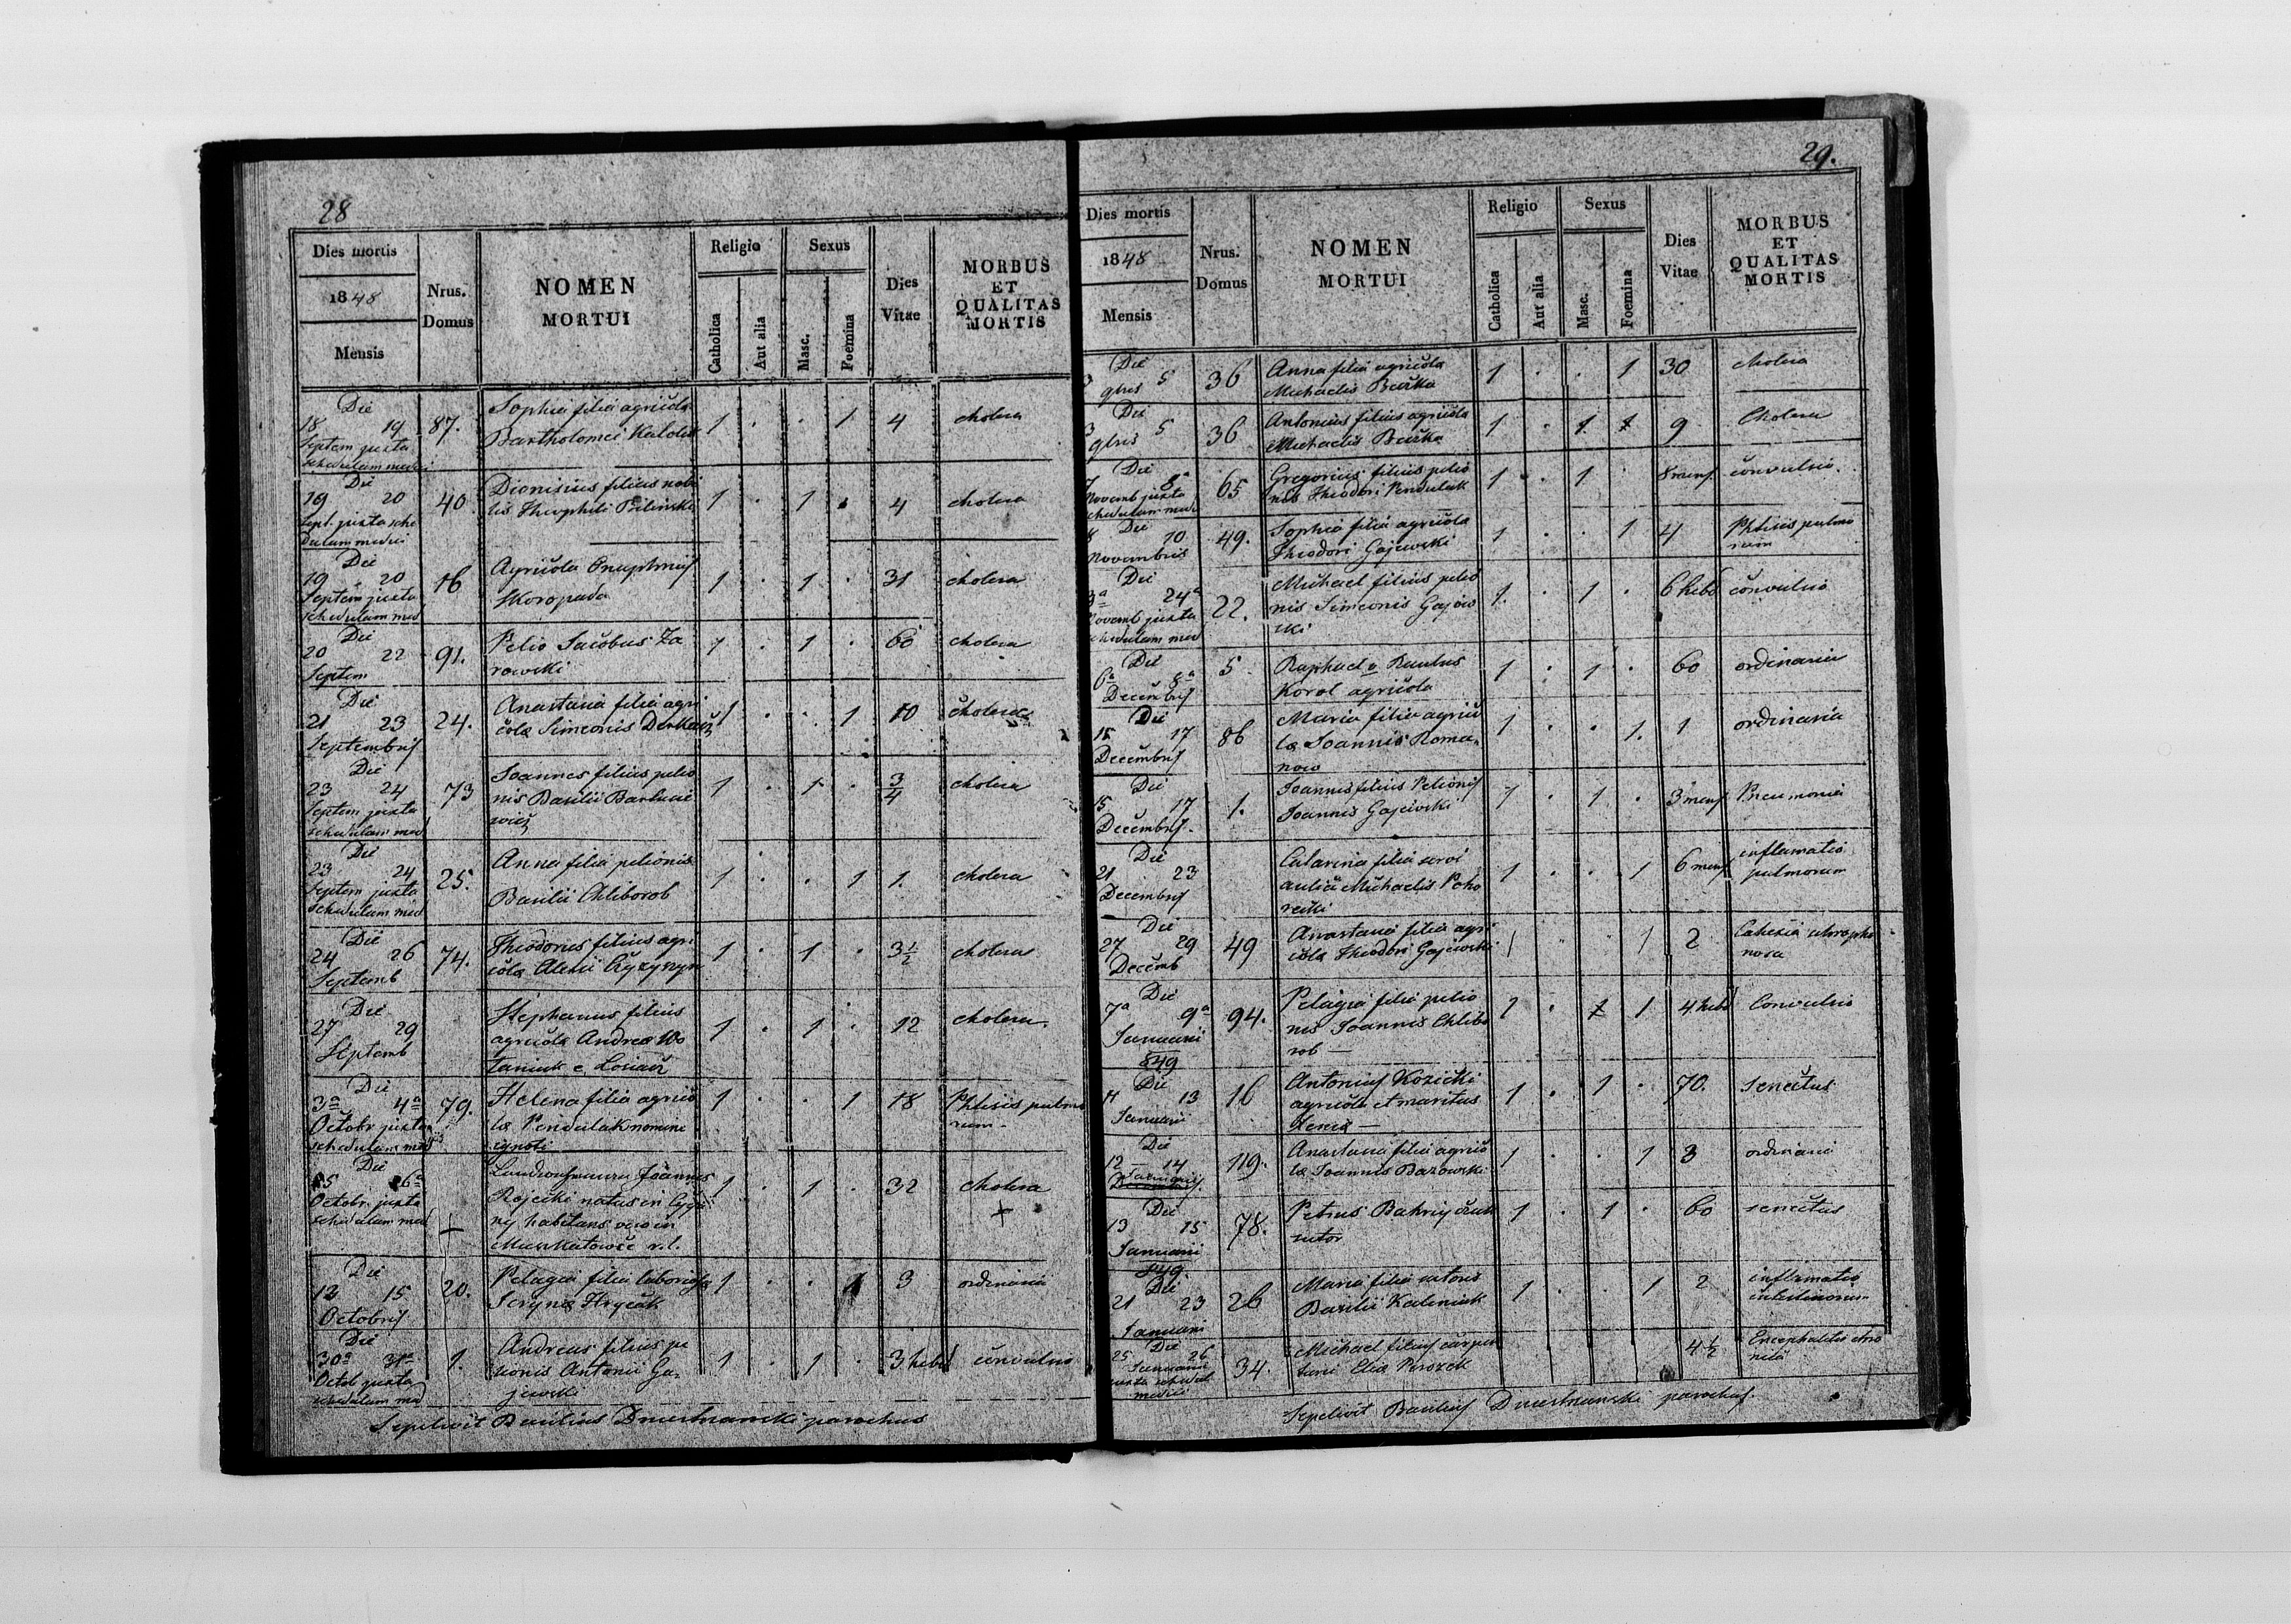 28
Dies mortis
1848
Mensis
Nrus.
Domus
NOMEN
MORTUI
Religio
Catholica
Aut alia
Sexus
Masc.
Foemina
Dies
Vitae
MORBUS
ET
QUALITAS
MORTIS
Die
18 19
Septem juxta
schedulam medici
87.
Sophia filia agricolae
Bartholomei
1 . . 1 4 cholera
Die
19 20
Sept. juxta sche
dulam medici
40.
Dionisius filius nobi
lis Theophili Pilinski
1 . 1 . 4 cholera
Die
19 20
Septem juxta
schedulam med
16
Agricola Onuphrius
Skoropada
1 . 1 . 31 cholera
Die
20 22
Septem
91.
Pelio Jacobus Za
rowski
1 . 1 . 60 cholera
Die
21 23
Septembris
24.
Anastasia filia agri
colae Simeonis Derkacz
1 . . 1 10 cholera
Die
23 24
Septem juxta
schedulam med
73
Joannes filius pelio
nis Basilii Bartkie
wicz
1 . 1 . 3/4 cholera
Die
23 24
Septem juxta
schedulam med
25.
Anna filia pelionis
Basilii Chliborob
1 . . 1 1. cholera
Die
24 26
Septemb
74.
Theodorus filius agri
colae Alexii
1 . 1 . 3 1/2 cholera
Die
27 29
Septemb
Stephanus filius
agricolae Andreae Wo
taniuk e
1 . 1 . 12 cholera.
Die
3a 4a
Octobr juxta
schedulam med
79.
Helena filia agrico
lae Pendulak nomine
ignoti
1 . . 1 18 Phtisis pulmo
rum
Die
Octobr. juxta
schedulam med
Joannes
Rojecki natus in Cyga
ny habitans vero in
Muszkatowce r. l.
1 . 1 . 32 cholera
+
Die
13 15
Octobris
20.
Pelagia filia laboriosae
Hrycak
1 . . 1 3 ordinaria
Die
30a 31a
Octob juxta
schedulam med
1.
Andreas filius pe
lionis Antonii Ga
jewski
1 . 1 . 3 hebd convulsio
Sepelivit Basilius Dniestrzanski parochus
29.
Dies mortis
1848
Mensis
Nrus.
Domus
NOMEN
MORTUI
Religio
Catholica
Aut alia
Sexus
Masc.
Foemina
Dies
Vitae
MORBUS
ET
QUALITAS
MORTIS
Die
3 5
9bris
36
Anna filia agricolae
Michaelis Burka
1 . . 1 30 cholera
Die
3 5
9bris
36
Antonius filius agricolae
Michaelis Burka
1 . 1 1 9 Cholera
Die
7 8a
Novemb juxta
schedulam med
65
Gregorius filius pelio
nis Theodori Pendulak
1 . 1 . 8 mens. convulsio.
Die
8 10
Novembris
49.
Sophia filia agricolae
Theodori Gajewski
1 . . 1 4 Phtisis pulmo
rum
Die
3a 24a
Novemb juxta
schedulam med
22.
Michael filius pelio
nis Simeonis Gajew
ski
1. . 1 . 6 hebd convulsio
Die
6a 8a
Decembris
5
Raphael v Paulus
Korol agricola
1 . 1 . 60 ordinaria
Die
15 17
Decembris
86
Maria filia agrico
lae Joannis Roma
now
1 . . 1. 1 ordinaria
Die
15 17
Decembris.
1.
Joannis filius Pelionis
Joannis Gajewski
1 . 1 . 3 mens Pneumonia
Die
21 23
Decembris
Catarina filia servi
aulici Michaelis Poho
recki
1 . . 1 6 mens inflamatio
pulmorum
Die
27 29
Decemb
49
Anastasia filia agri
colae Theodori Gajewski
1 . . 1 2 Cahexia
Die
7a 9a
Januarii
849
94.
Pelagia filia pelio
nis Joannis Chlibo
rob —
1 . 1 1 4 hebd Convulsio
Die
11 13
Januarii
16
Antonius Kozicki
agricola et maritus
—
1 . 1 . 70. senectus
Die
12 14
Januarij.
119.
Anastasia filia agrico
lae Joannis Bazowski
1 . . 1 3 ordinaria
Die
13 15
Januarii
849.
78.
Petrus Bakryjczuk
sutor
1 . 1 . 60 senectus
Die
21 23
Januarii
26
Maria filia sutoris
Basilii Kaliniuk
1 . . 1 2 inflamatio
intestinorum
Die
25 26
Januarii
juxta schedul
medici
34
Michael filius carpen
tarii Eliae
4 1/2 Encephalitis
Sepelivit Basilius Dniestrzanski parochus.